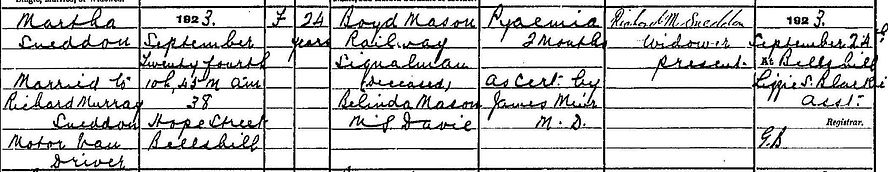 Martha
Sneddon
Married to
Richard Murray
Sneddon
Motor Van
Driver
1923.
September
Twenty fourth
10h, 45m am
38
Hope Street
Bellshill
F
24
years
Boyd Mason
Railway
Signalman
(Deceased)
Belinda Mason
M.S. Davie
Pyaemia
2 Months
As Cert. by
James Muir
M.D.
Richard M. Sneddon
Widower
present.
1923.
September 24
At Bellshill
Lizzie S. Blackie
Asst.
Registrar.
G.B